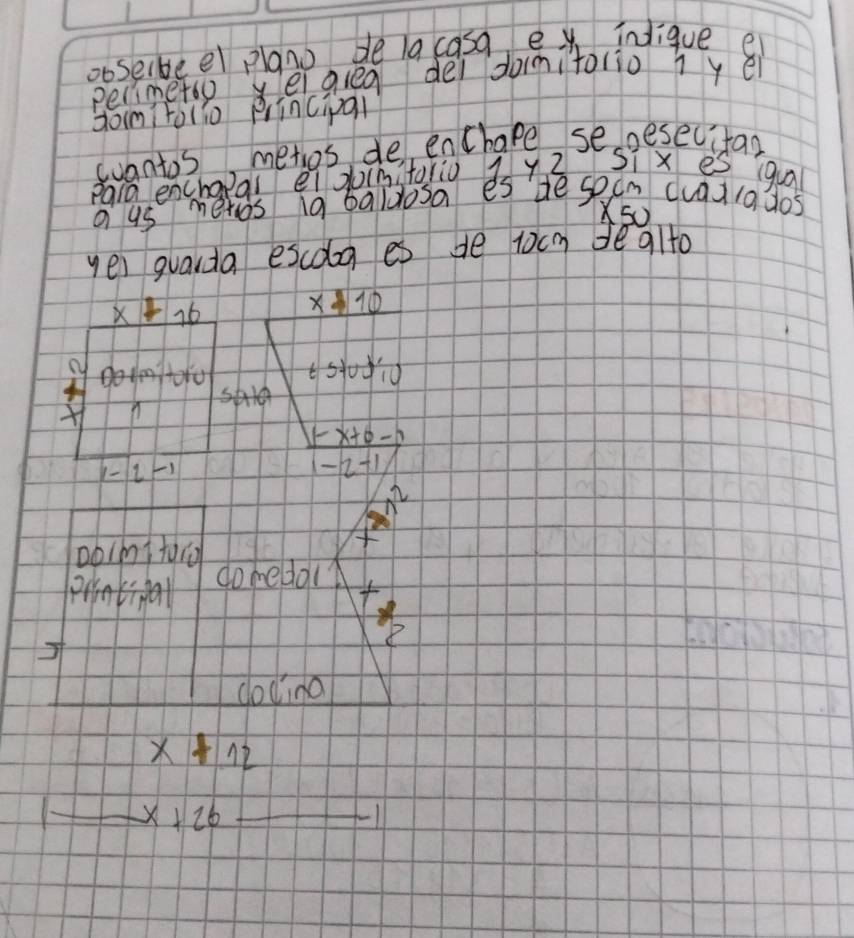 obserbe el plano de la casa e y indique el
perimetro y el area del dormitorio 1 y el
dormitorio principal
cuantos metros de enchape se nesecitan
para enchapar el dormitorio 1 y 2 si x es igual
a 45 metros la baldosa es de 50cm cuadrados
x50
y el guarda escoba es de 10cm de alto
x + 16
x + 10
x + 2
Dormitoro
1
sala
estudio
|-x+6-|
|-2-|
|-2-|
x 12
Dormitoro
Principal
comedor
x 2
cocina
x + 12
|——x+26——|